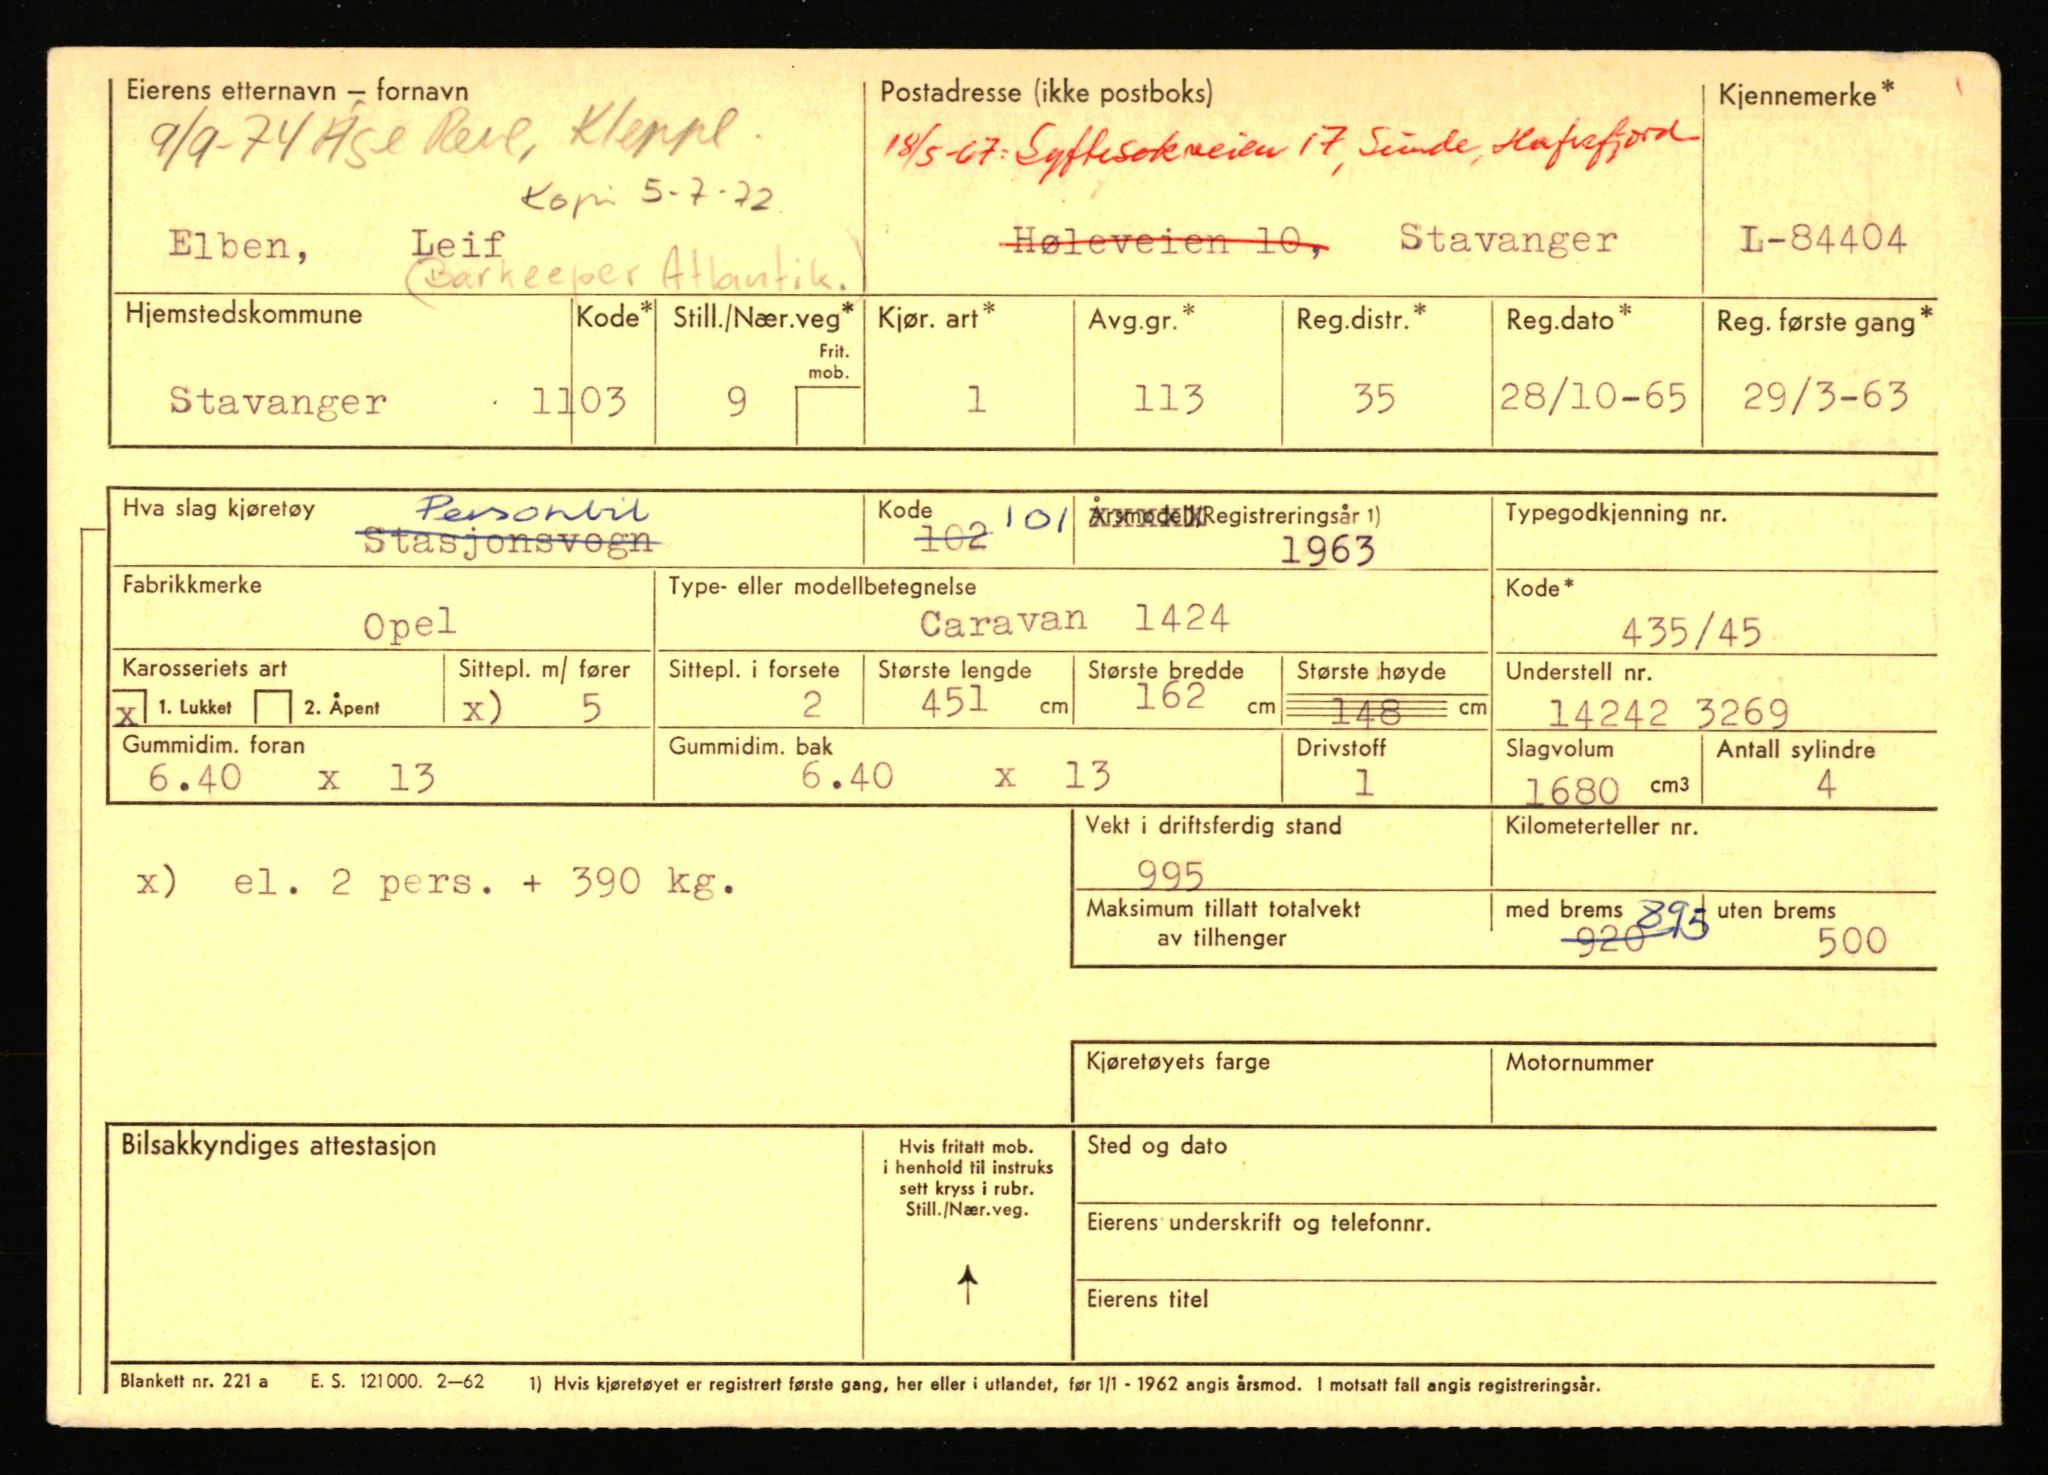 Eierens etternavn – fornavn
Postadresse (ikke postboks)
Kjennemerke*
9/9-74 Åge Reve, Kleppe.
18/5-67: Syftesokveien 17, Sunde, Hafrsfjord
Kopi 5-7-72
Elben, Leif
Høleveien 10, Stavanger
L-84404
(Barkeeper Atlantik.)
Hjemstedskommune
Kode*
Still./Nær.veg*
Kjør. art*
Avg.gr.*
Reg.distr.*
Reg.dato*
Reg. første gang*
Frit.
mob.
Stavanger 1103
9
1
113
35
28/10-65
29/3-63
Hva slag kjøretøy
Personbil
Stasjonsvogn
Kode
102 101
Årsmodell/Registreringsår 1)
1963
Typegodkjenning nr.
Fabrikkmerke
Opel
Type- eller modellbetegnelse
Caravan 1424
Kode*
435/45
Karosseriets art
x 1. Lukket 2. Åpent
Sittepl. m/ fører
x) 5
Sittepl. i forsete
2
Største lengde
451 cm
Største bredde
162 cm
Største høyde
148 cm
Understell nr.
14242 3269
Gummidim. foran
6.40 x 13
Gummidim. bak
6.40 x 13
Drivstoff
1
Slagvolum
1680 cm3
Antall sylindre
4
x) el. 2 pers. + 390 kg.
Vekt i driftsferdig stand
995
Kilometerteller nr.
Maksimum tillatt totalvekt
av tilhenger
med brems 895
920
uten brems
500
Kjøretøyets farge
Motornummer
Bilsakkyndiges attestasjon
Hvis fritatt mob.
i henhold til instruks
sett kryss i rubr.
Still./Nær.veg.
Sted og dato
Eierens underskrift og telefonnr.
Eierens titel
Blankett nr. 221 a E. S. 121000. 2–62 1) Hvis kjøretøyet er registrert første gang, her eller i utlandet, før 1/1 - 1962 angis årsmod. I motsatt fall angis registreringsår.